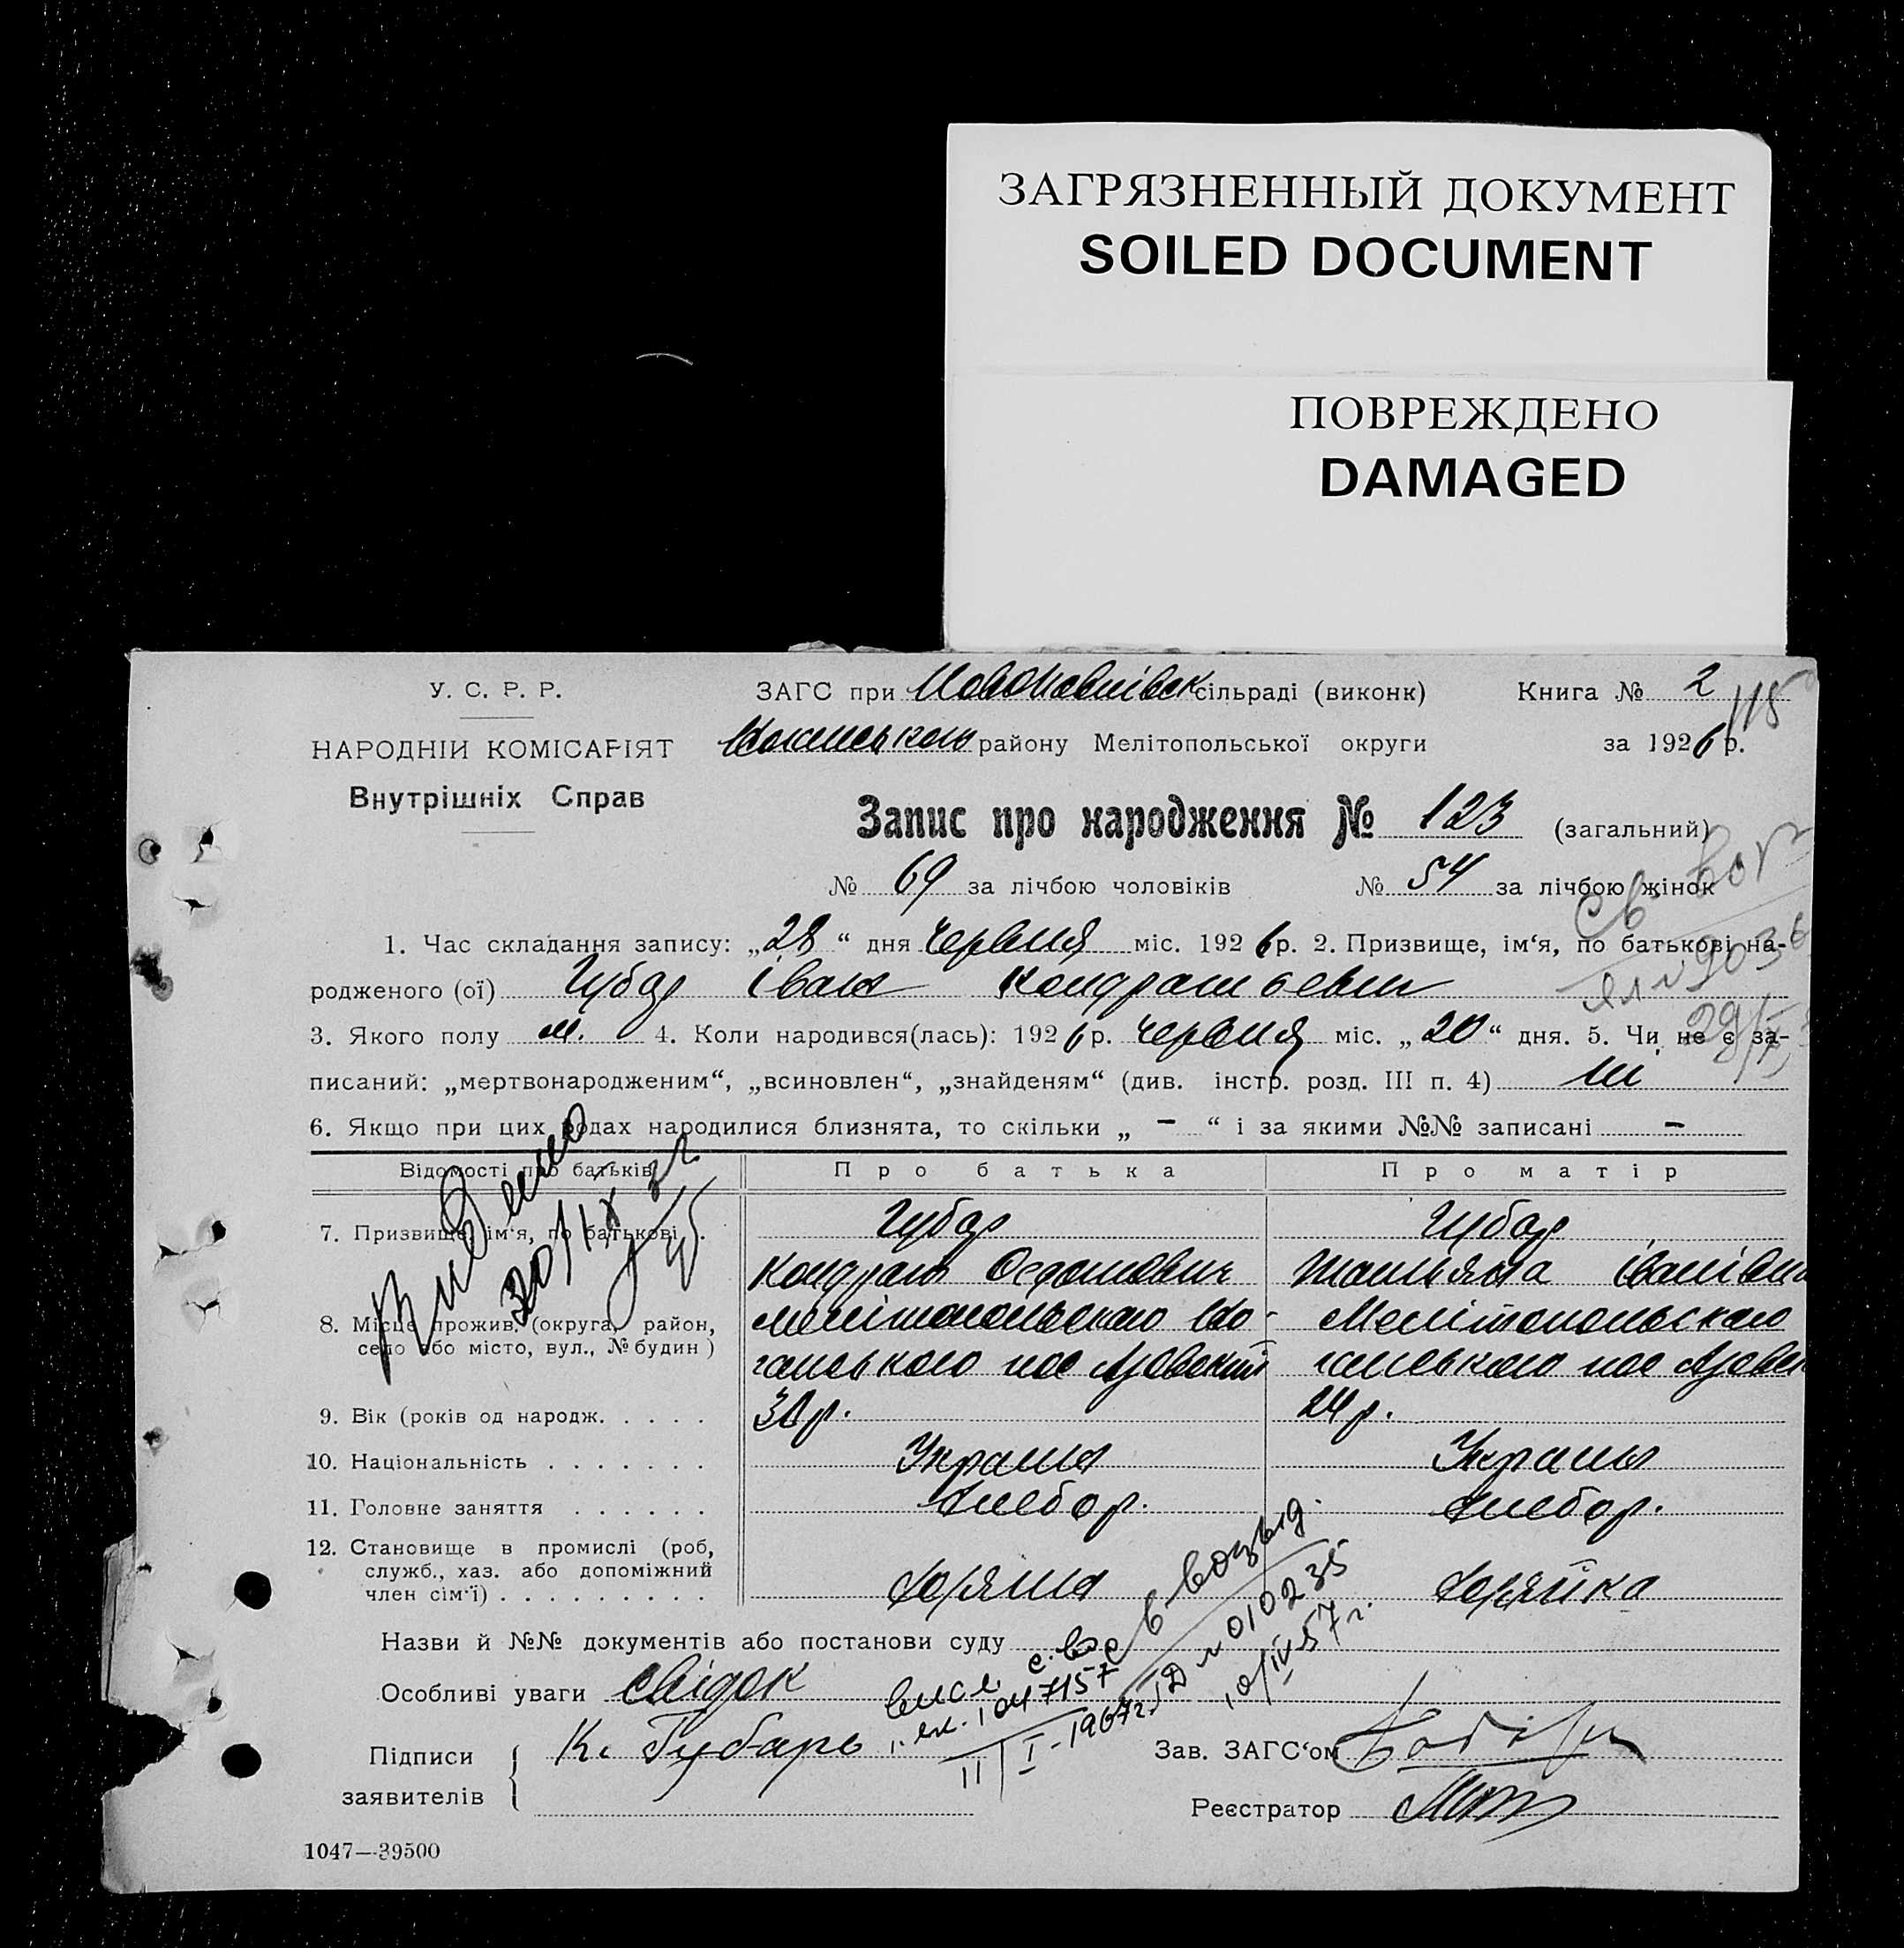 ЗАГРЯЗНЕННЫЙ ДОКУМЕНТ
SOILED DOCUMENT
ПОВРЕЖДЕНО
DAMAGED
У. С. Р. Р.
НАРОДНІИ КОМІСАРІЯТ
Внутрішніх Справ
ЗАГС при сільраді (виконк) Книга № 2
115
району Мелітопольської округи за 1926 р.
Запис про народження № 123 (загальний)
№ 69 за лічбою чоловіків № 54 за лічбою жінок
1. Час складання запису: „28“ дня червня міс. 1926 р. 2. Призвище, ім‘я, по батькові на-
родженого (ої) Губар Іван Кондратьевич
3. Якого полу м. 4. Коли народився(лась): 1926 р. червня міс. „20“ дня. 5. Чи не є за-
писаний: „мертвонародженим“, „всиновлен“, „знайденям“ (див. інстр. розд. III п. 4) ні
6. Якщо при цих родах народилися близнята, то скільки „ – “ і за якими №№ записані –
Відомості про батьків Про батька Про матір
7. Призвище, ім‘я, по батькові . Губар Губар
Кондрат Остапович Татьяна Іванівна
8. Місце прожив. (округа, район, Мелітопольского Мелітопольского
село або місто, вул., № будин) пос Азовский пос
9. Вік (років од народж. . . . . 30 р. 24 р.
10. Національність . . . . . . . Україн Україн
11. Головне заняття . . . . . . хлебор. хлебор.
12. Становище в промислі (роб,
служб., хаз. або допоміжний
член сім‘ї) . . . . . . . . . хозяин хозяйка
Назви й №№ документів або постанови суду
Особливі уваги свідок
Підписи К. Губарь Зав. ЗАГС‘ом
заявителів Реєстратор
св возвр
010235
10/IV 57 г.
1047157
11/I-1967 г.
29/X
1047—39500